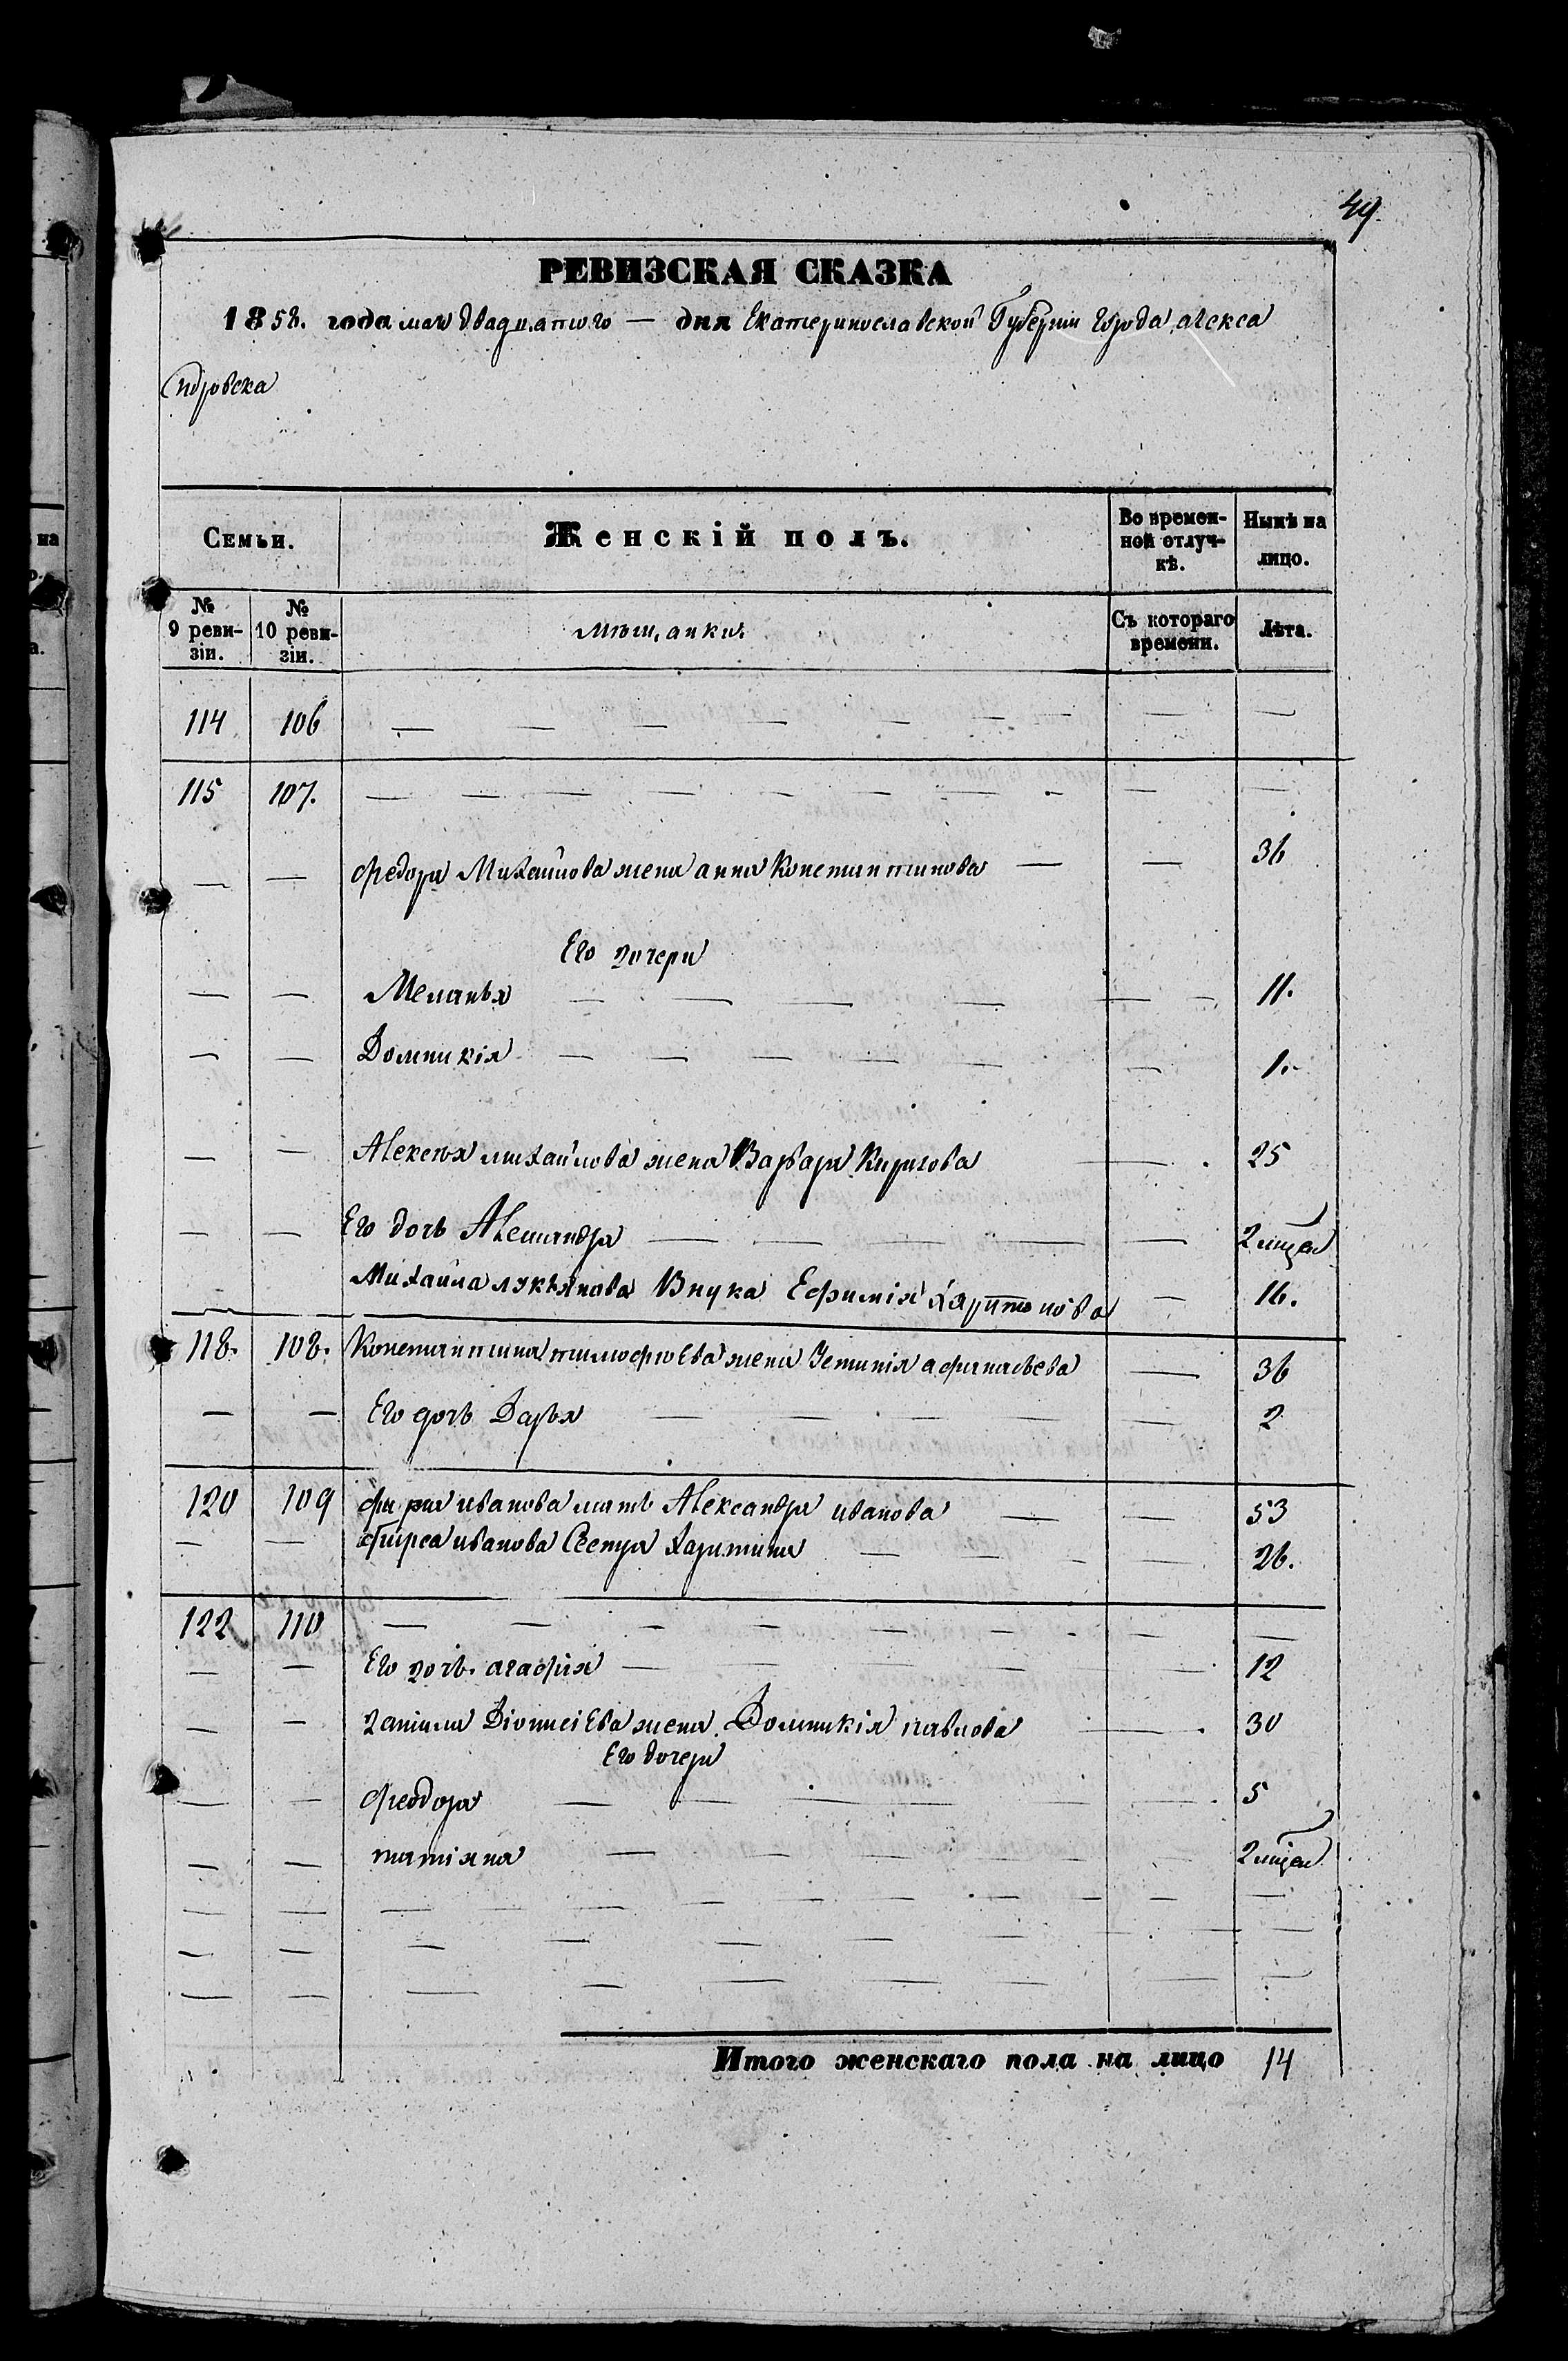 49
РЕВИЗСКАЯ СКАЗКА
1858. года мая двадцатого — дня Екатеринославской Губерніи Города алекса
ндровска
Семьи. Женскій полъ. Во времен- Нынѣ на
ной отлуч- лицо.
кѣ.
№ № мѣщанки. Съ котораго Лѣта.
9 реви- 10 реви- времени.
зіи. зіи.
114 106 — — — — — — — — —
115 107. — — — — — — — — —
— — федора Михайлова жена анна Константинова — — 36
Его дочери
— — Меланья — — — — — — 11.
— — Домникія — — — — — — 1.
— — Алексѣя михайлова жена Варвара Кирилова — 25
— — Его дочь Александра — — — — — 2 мѣсец
Михайла лукьянова Внука Ефимія Харитонова — 16.
118. 108. Константина тимофѣева жена Устинія афанасьева — 36
— — Его дочь Дарья — — — — — 2
120 109 фирса иванова мать Александра иванова — — 53
— — фирса иванова Сестра Харитина — — — — 26.
122 110 — — — — — — — — —
— — Его дочь агафія — — — — — — 12
— — данила Діонисіева жена Домникія павлова — 30
Его дочери
— — Феодора — — — — — — 5
— — татіяна — — — — — — 2 мѣсец
Итого женскаго пола на лицо 14